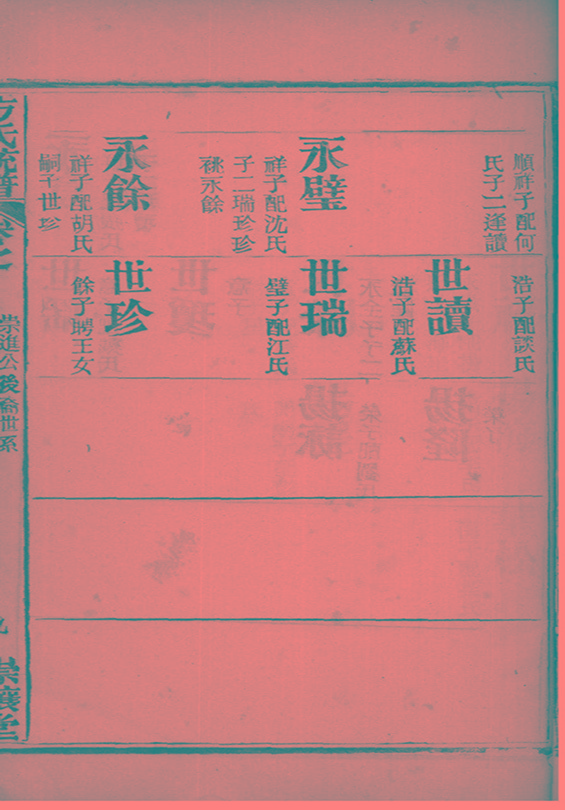 順祥子配何
氏子二逢讀
永璧
祥子配沈氏
子二瑞珍珍
祧永餘
永餘
祥子配胡氏
嗣子世珍
浩子配談氏
世讀
浩子配蘇氏
世瑞
璧子配江氏
世珍
餘子聘王女
方氏統譜
崇進公後裔世系
九